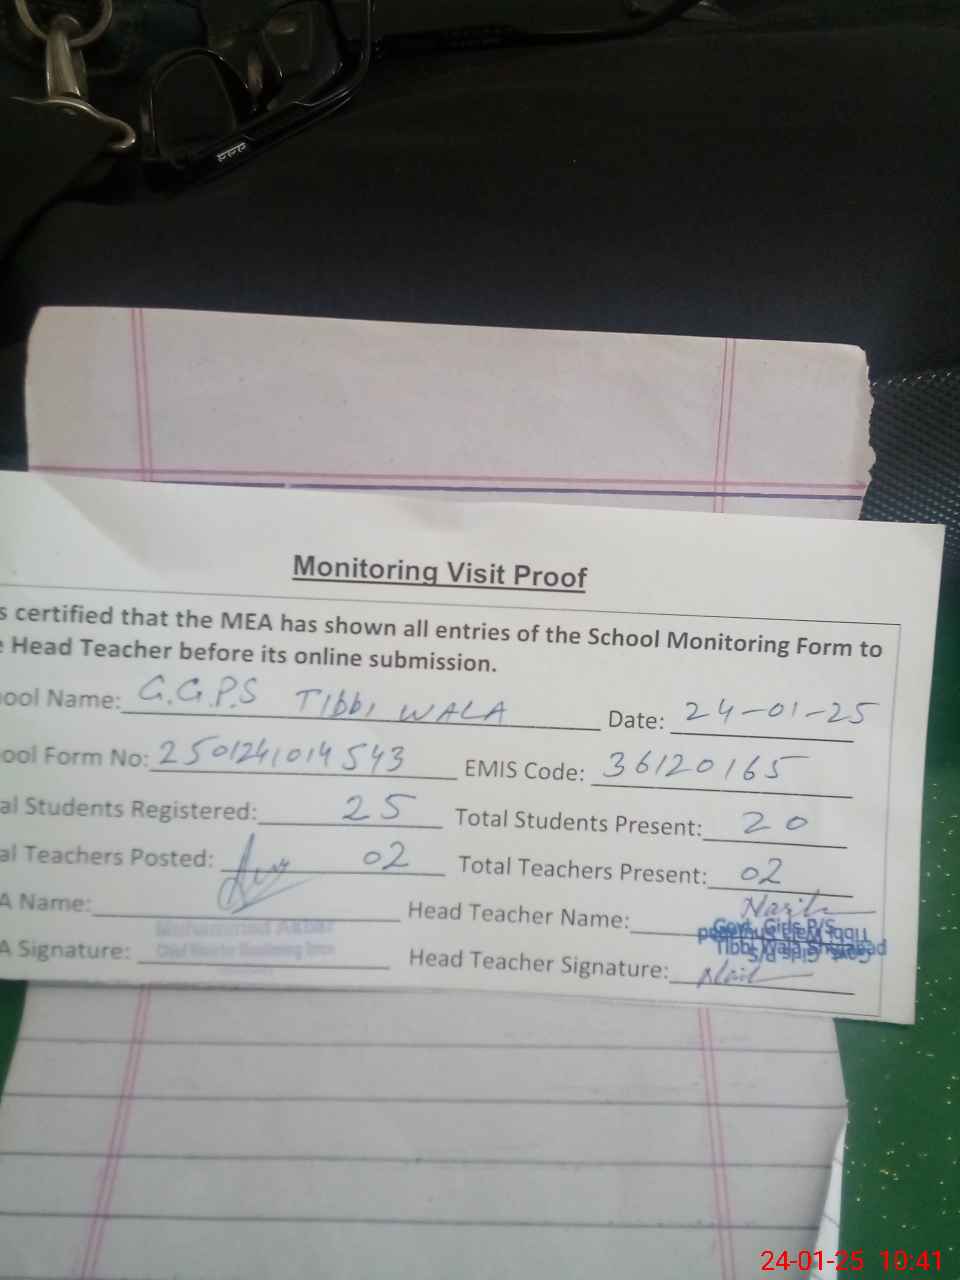 Monitoring Visit Proof
s certified that the MEA has shown all entries of the School Monitoring Form to
e Head Teacher before its online submission.
ool Name: G.G.P.S Tibbi WALA Date: 24-01-25
ool Form No: 2501241014543 EMIS Code: 36120165
al Students Registered: 25 Total Students Present: 20
al Teachers Posted: 02 Total Teachers Present: 02
A Name: Head Teacher Name:
Muhammad Akbar
Govt. Girls P/S
Tibbi Wala
A Signature: Head Teacher Signature:
24-01-25 10:41